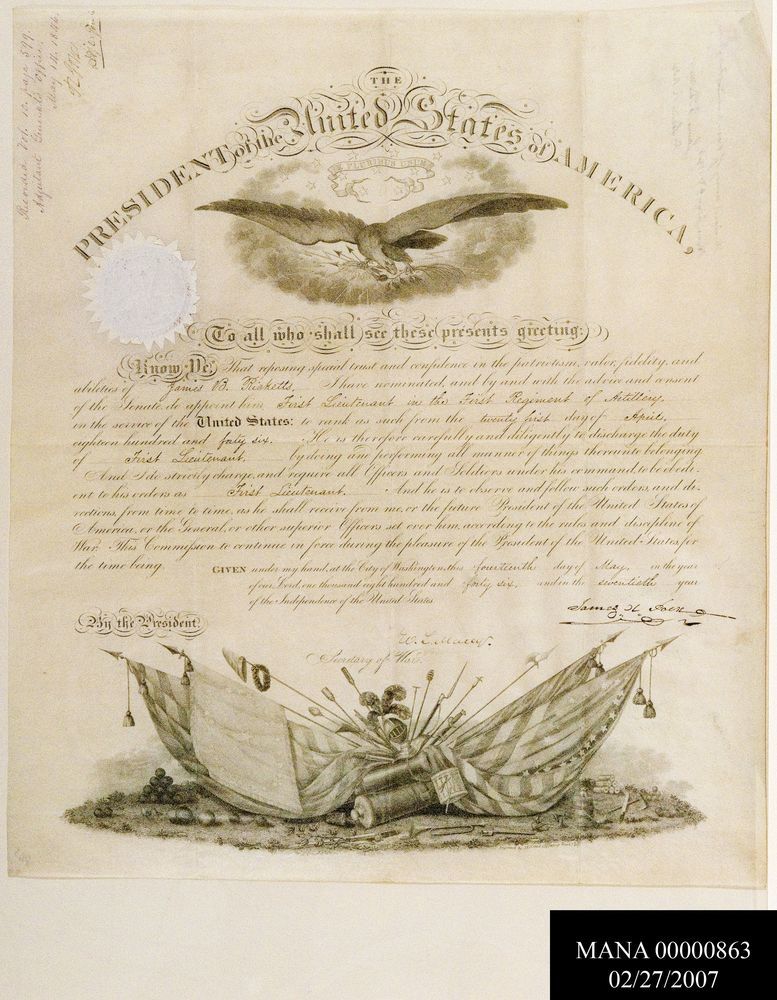 Recorded Vol. 10. page 599.
Adjutant General's Office,
May 14. 1846.
THE
PRESIDENT of the United States of AMERICA,
E PLURIBUS UNUM
To all who shall see these presents greeting:
Know Ye, That reposing special trust and confidence in the patriotism, valor, fidelity, and
abilities of James B. Ricketts, I have nominated, and by and with the advice and consent
of the Senate, do appoint him First Lieutenant in the First Regiment of Artillery,
in the service of the United States: to rank as such from the twenty first day of April,
eighteen hundred and forty six. He is therefore carefully and diligently to discharge the duty
of First Lieutenant by doing and performing all manner of things thereunto belonging
And I do strictly charge, and require all Officers and Soldiers under his command, to be obedi-
ent to his orders as First Lieutenant. And he is to observe and follow such orders, and di-
rections, from time to time, as he shall receive from me, or the future President of the United States of
America, or the General, or other superior Officers set over him, according to the rules and discipline of
War. This Commission to continue in force during the pleasure of the President of the United States, for
the time being.
GIVEN under my hand, at the City of Washington, this fourteenth day of May, in the year
of our Lord, one thousand eight hundred and forty six, and in the seventieth year
of the Independence of the United States.
James K. Polk
By the President,
W. L. Marcy,
Secretary of War.
MANA 00000863
02/27/2007